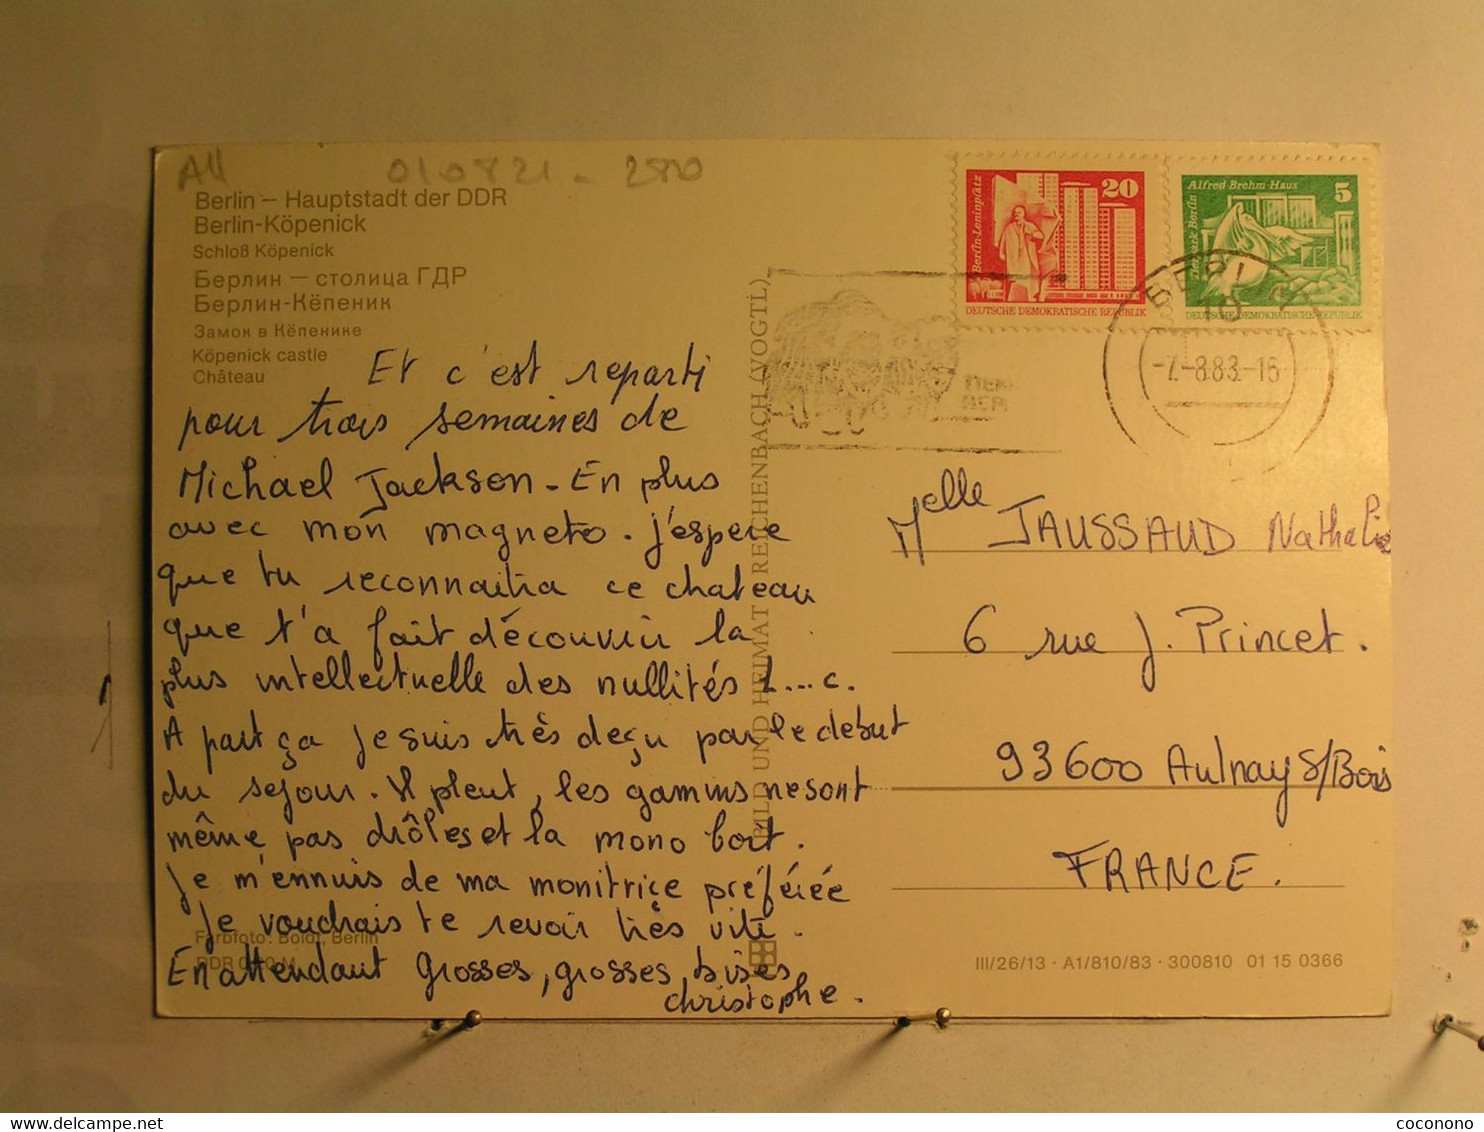 A4 010821 - 280
Berlin – Hauptstadt der DDR
Berlin-Köpenick
Schloß Köpenick
Берлин – столица ГДР
Берлин-Кёпеник
Замок в Кёпенике
Köpenick castle
Château
Et c'est reparti
pour trois semaines de
Michael Jackson - En plus
avec mon magneto. j'espère
que tu reconnaitra ce chateau
que t'a fait découvrir la
plus intellectuelle des nullités L...c.
A part ça je suis très deçu par le debut
du sejour. Il pleut, les gamins ne sont
même pas drôles et la mono boit.
Je m'ennuis de ma monitrice préférée
Je voudrais te revoir très vite.
En attendant Grosses, grosses bises
christophe.
Farbfoto: Boldt, Berlin
DDR 0,20 M
BILD UND HEIMAT REICHENBACH (VOGTL)
Berlin-Leninplatz
20
DEUTSCHE DEMOKRATISCHE REPUBLIK
Alfred-Brehm-Haus
5
Tierpark Berlin
DEUTSCHE DEMOKRATISCHE REPUBLIK
BERLIN
10
-7.-8.83.-16
Melle JAUSSAUD Nathalie
6 rue J. Princet.
93600 Aulnay S/Bois
FRANCE.
III/26/13 · A1/810/83 · 300810 01 15 0366
coconono